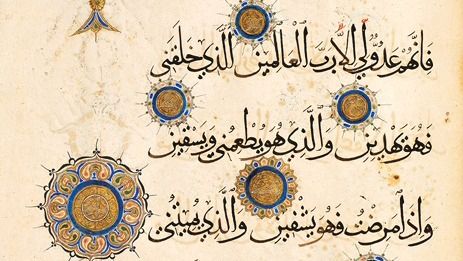 فَإِنَّهُمْ عَدُوٌّ لِي إِلَّا رَبَّ الْعَالَمِينَ الَّذِي خَلَقَنِي
فَهُوَ يَهْدِينِ وَالَّذِي هُوَ يُطْعِمُنِي وَيَسْقِينِ
وَإِذَا مَرِضْتُ فَهُوَ يَشْفِينِ وَالَّذِي يُمِيتُنِي